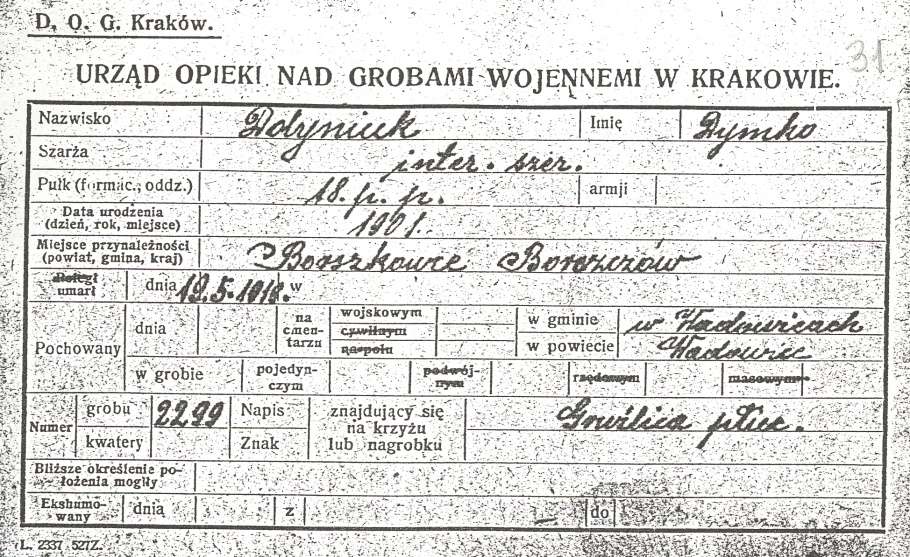 D. O. G. Kraków.
31
URZĄD OPIEKI NAD GROBAMI WOJENNEMI W KRAKOWIE.
Nazwisko Dołyniuk Imię Dymko
Szarża inter. szer.
Pułk (formac., oddz.) 18. p. p. armji
Data urodzenia
(dzień, rok, miejsce) 1901.
Miejsce przynależności
(powiat, gmina, kraj) Borszkowce Borszczów
Poległ
umarł dnia 19.5.1919. w
Pochowany dnia na cmen-
tarzu wojskowym
cywilnym
naspołu
w gminie w Wadowicach
w powiecie Wadowic
w grobie pojedyn-
czym podwój-
nym rzędowym masowym
Numer grobu 2299
kwatery
Napis
Znak
znajdujący się
na krzyżu
lub nagrobku
Gruźlica płuc.
Bliższe określenie po-
łożenia mogiły
Ekshumo-
wany dnia z do
L. 2337 527Z.